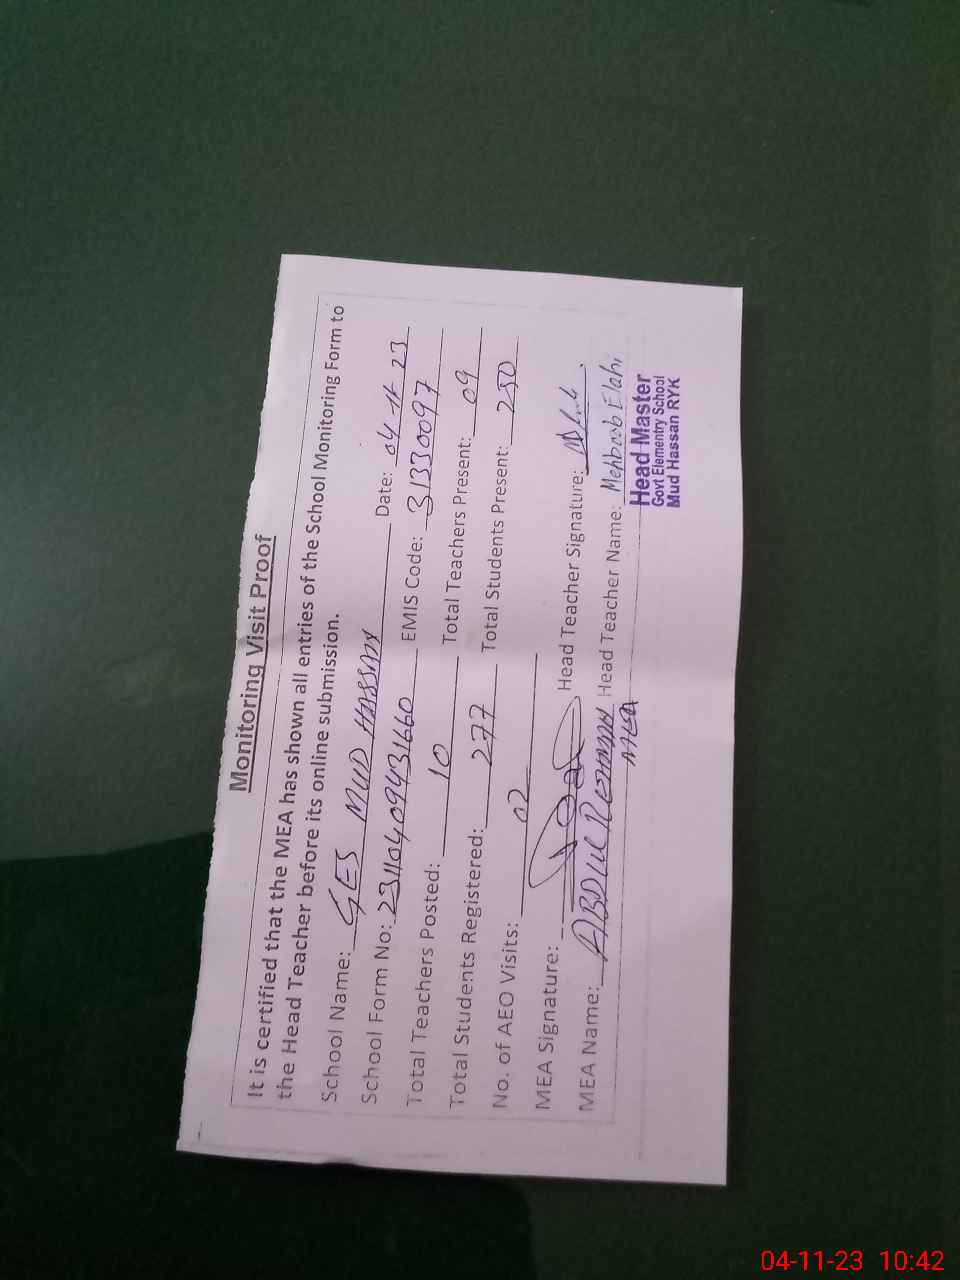 Monitoring Visit Proof
It is certified that the MEA has shown all entries of the School Monitoring Form to
the Head Teacher before its online submission.
School Name: GES MUD HASSAN Date: 04-11-23
School Form No: 23110409431660 EMIS Code: 31330097
Total Teachers Posted: 10 Total Teachers Present: 09
Total Students Registered: 277 Total Students Present: 250
No. of AEO Visits: 02
MEA Signature: Head Teacher Signature:
MEA Name: ABDUL REHMAN Head Teacher Name: Mehboob Elahi
MEA
Head Master
Govt Elementry School
Mud Hassan RYK
04-11-23 10:42